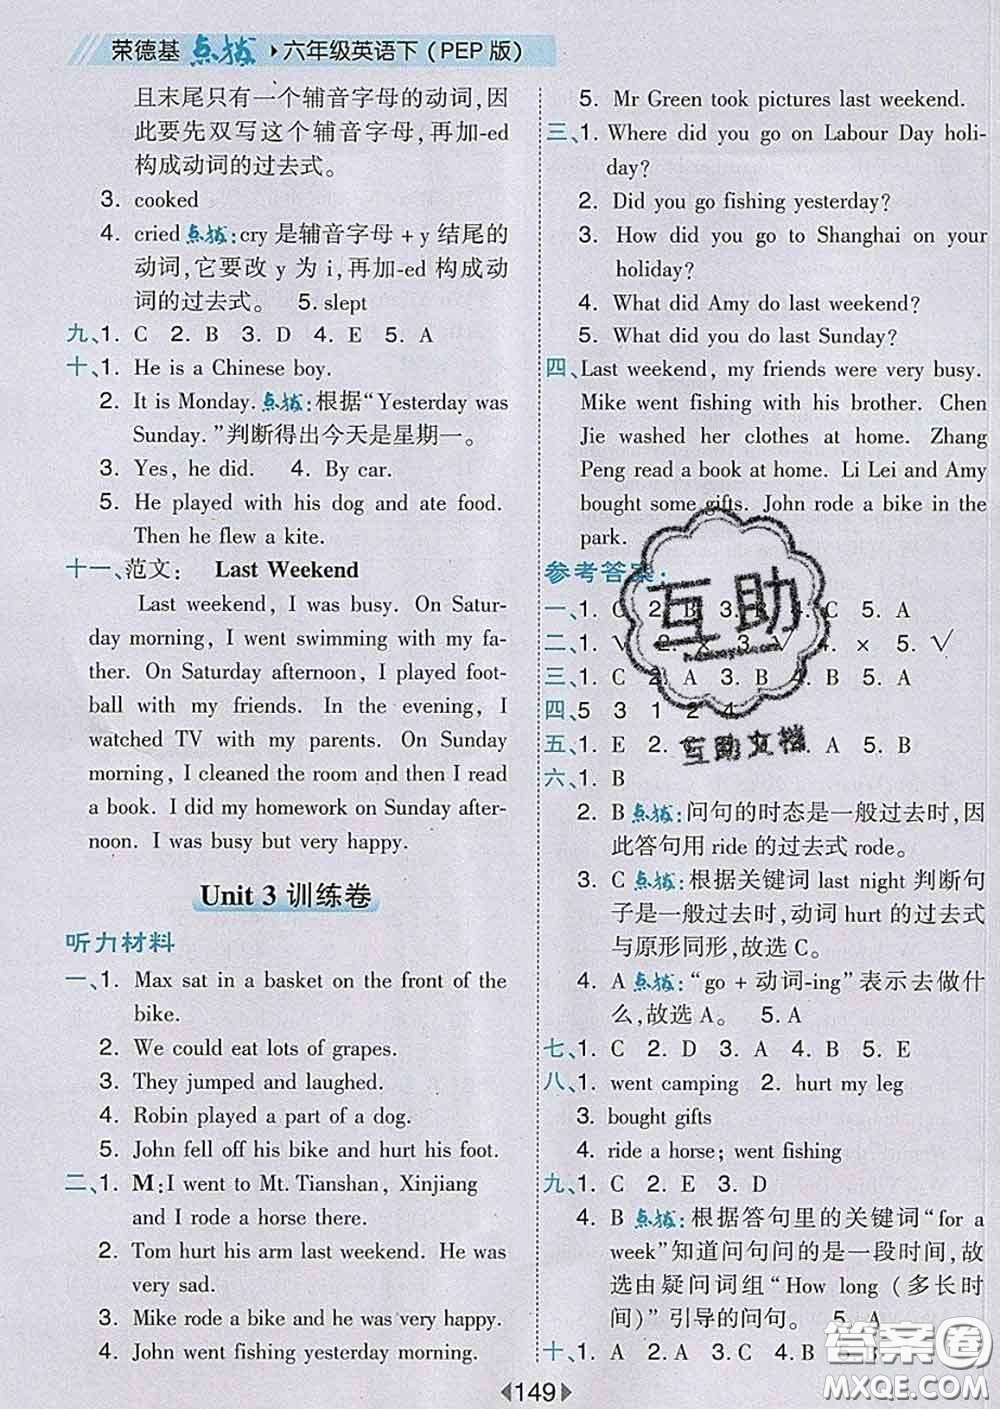 荣德基 点拨 六年级英语下(PEP版)
且末尾只有一个辅音字母的动词,因
此要先双写这个辅音字母,再加-ed
构成动词的过去式。
3. cooked
4. cried点拨:cry是辅音字母+y结尾的
动词,它要改y为i,再加-ed构成动
词的过去式。 5. slept
九、1. C 2. B 3. D 4. E 5. A
十、1. He is a Chinese boy.
2. It is Monday.点拨:根据“Yesterday was
Sunday.”判断得出今天是星期一。
3. Yes, he did. 4. By car.
5. He played with his dog and ate food.
Then he flew a kite.
十一、范文: Last Weekend
Last weekend, I was busy. On Satur-
day morning, I went swimming with my fa-
ther. On Saturday afternoon, I played foot-
ball with my friends. In the evening, I
watched TV with my parents. On Sunday
morning, I cleaned the room and then I read
a book. I did my homework on Sunday after-
noon. I was busy but very happy.
Unit 3 训练卷
听力材料
一、1. Max sat in a basket on the front of the
bike.
2. We could eat lots of grapes.
3. They jumped and laughed.
4. Robin played a part of a dog.
5. John fell off his bike and hurt his foot.
二、1. M:I went to Mt. Tianshan, Xinjiang
and I rode a horse there.
2. Tom hurt his arm last weekend. He was
very sad.
3. Mike rode a bike and he was very happy.
4. John went fishing yesterday morning.
5. Mr Green took pictures last weekend.
三、1. Where did you go on Labour Day holi-
day?
2. Did you go fishing yesterday?
3. How did you go to Shanghai on your
holiday?
4. What did Amy do last weekend?
5. What did you do last Sunday?
四、Last weekend, my friends were very busy.
Mike went fishing with his brother. Chen
Jie washed her clothes at home. Zhang
Peng read a book at home. Li Lei and Amy
bought some gifts. John rode a bike in the
park.
参考答案:
一、1. C 2. B 3. B 4. C 5. A
二、1. √ 2. × 3. √ 4. × 5. √
三、1. C 2. A 3. B 4. B 5. A
四、5 3 1 2 4
五、1. E 2. A 5. B
六、1. B
2. B点拨:问句的时态是一般过去时,因
此答句用ride的过去式rode。
3. C点拨:根据关键词last night判断句
子是一般过去时,动词hurt的过去式
与原形同形,故选C。
4. A点拨:“go+动词-ing”表示去做什
么,故选A。 5. A
七、1. C 2. D 3. A 4. B 5. E
八、1. went camping 2. hurt my leg
3. bought gifts
4. ride a horse; went fishing
九、1. C 2. E 3. D
4. B点拨:根据答句里的关键词“for a
week”知道问句问的是一段时间,故
选由疑问词组“How long(多长时
间)”引导的问句。 5. A
十、1. A 2. A 3. C 4. B
149
互助
互助文档
答案圈
MXQE.COM